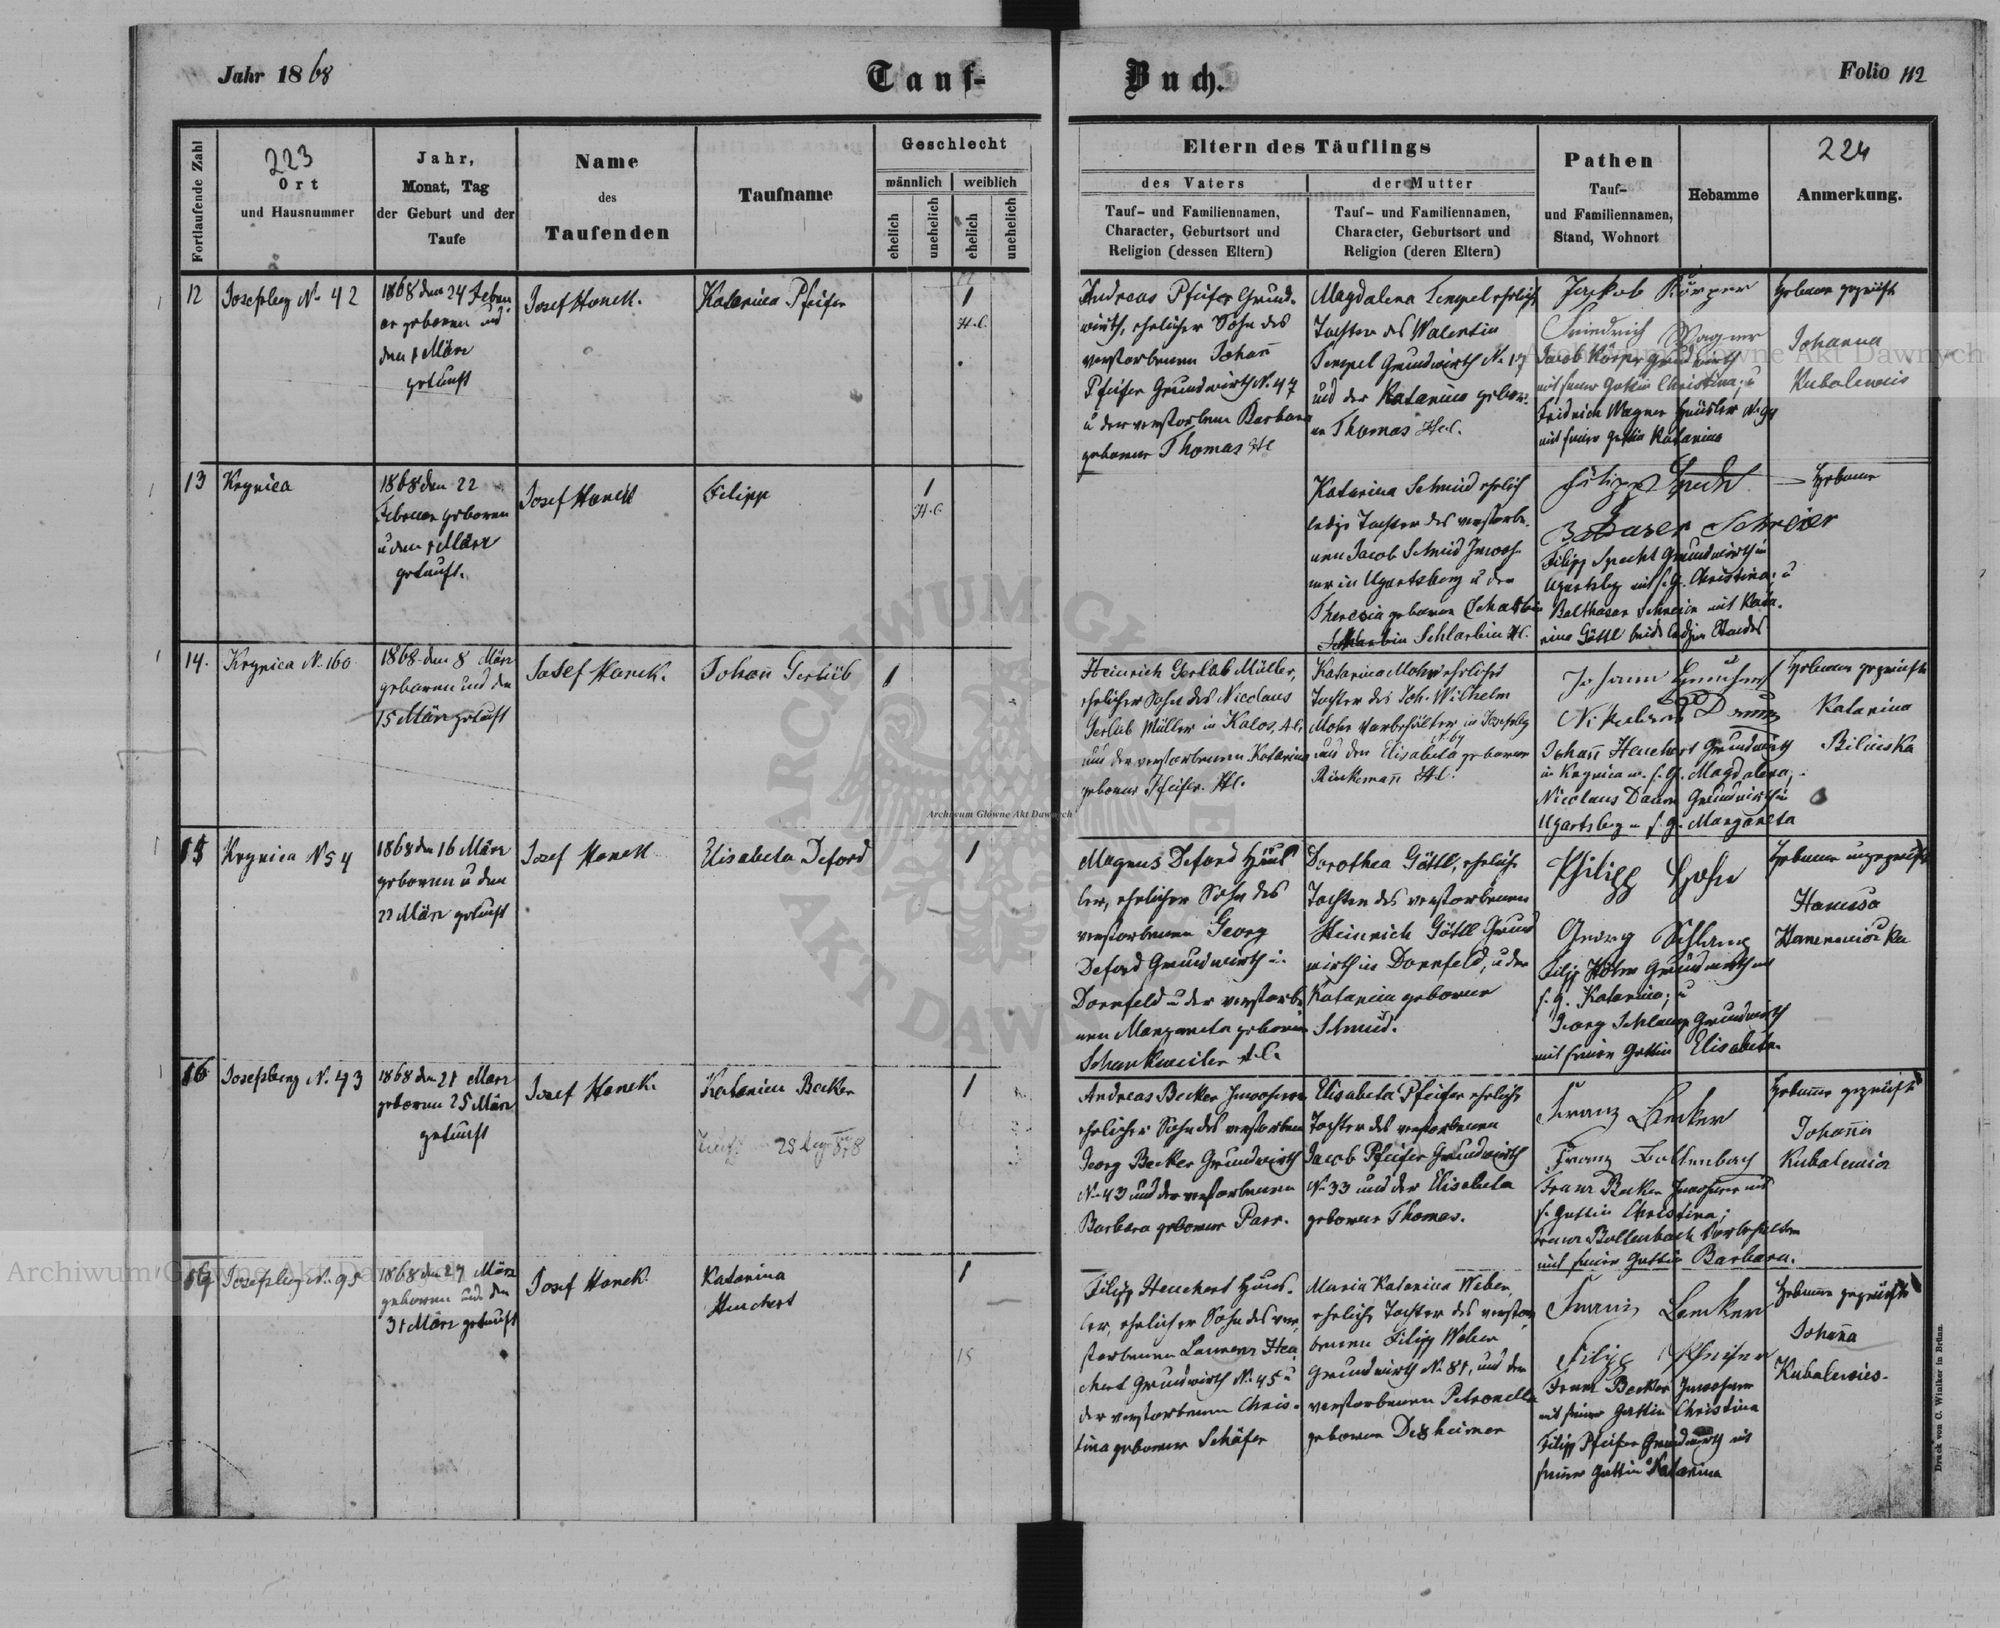 Jahr 1868
Tauf-
Buch.
Folio 112
Fortlaufende Zahl
223
Ort
und Hausnummer
Jahr,
Monat, Tag
der Geburt und der
Taufe
Name
des
Taufenden
Taufname
Geschlecht
männlich
weiblich
ehelich
unehelich
ehelich
unehelich
Eltern des Täuflings
des Vaters
der Mutter
Tauf- und Familiennamen,
Character, Geburtsort und
Religion (dessen Eltern)
Tauf- und Familiennamen,
Character, Geburtsort und
Religion (deren Eltern)
Pathen
Tauf-
und Familiennamen,
Stand, Wohnort
Hebamme
224
Anmerkung.
12
Josefsberg N. 42
1868 den 24 Febru-
ar geboren und
den 1 März
getauft
Josef Hanek.
Katarina Pfeifer
1
H.C.
Andreas Pfeifer Grund-
wirth, ehelicher Sohn des
verstorbenen Johann
Pfeifer Grundwirth N. 47
u der verstorbenen Barbara
geborene Thomas HC
Magdalena Tempel eheliche
Tochter des Valentin
Tempel Grundwirth N. 17
und der Katarina gebor-
ne Thomas H.C.
Jakob Körper
Friedrich Wagner
Jacob Körper Grundwirth
mit seiner Gattin Christina; u
Fridrich Wagner Häusler N. 99
mit seiner Gattin Katarina
Hebamme geprüft
Johanna
Kubalewics
13
Krynica
1868 den 22
Februar geboren
u den 1 März
getauft.
Josef Hanek
Filipp
1
H.C.
Katarina Schmid ehelich
ledige Tochter des verstorbe-
nen Jacob Schmid Inwoh-
ner in Ugartsberg u der
Theresia geborene
Schlarbin H.C.
Filipp Specht
Balthaser Schreier
Filipp Specht Grundwirth in
Ugartsberg mit s. G. Christina; u
Balthasar Schreier mit Kata-
rina Göttl beide ledigen Standes
Hebamme
14.
Krynica N. 160
1868 den 8 März
geboren und den
15 März getauft
Josef Hanek.
Johann Gerlüb
1
Heinrich Gerlab Müller,
ehelicher Sohn des Nicolaus
Gerlab Müller in Kalos, A.C.
und der verstorbenen Katarina
geborene Pfeifer. HC.
Katarina Mohr eheliche
Tochter des Joh. Wilhelm
Mohr Vorbehälter in Josefsberg
und der Elisabeta geborene
Rinkemann H.C.
Johann Heuchert
Nikolaus Daum
Johann Heuchert Grundwirth
in Krynica m. s. G. Magdalena;
Nicolaus Daum Grundwirth in
Ugartsberg m s. G. Margareta
Hebamme geprüft
Katarina
Bilinska
15
Krynica N 54
1868 den 16 März
geboren u den
22 März getauft
Josef Hanek
Elisabeta Deford
1
Magnus Deford Häus-
ler, ehelicher Sohn des
verstorbenen Georg
Deford Grundwirth in
Dornfeld u der verstorbe-
nen Margareta geborene
Schankweiler A.C.
Dorothea Göttl, eheliche
Tochter des verstorbenen
Heinrich Göttl Grund
wirth in Dornfeld, u der
Katarina geborene
Schmid.
Philipp Hohn
Georg Schlamp
Filipp Hohn Grundwirth mit
s. G. Katarina; u
Georg Schlamp Grundwirth
mit seiner Gattin Elisabeta.
Hebamme ungeprüft
Hanusa
16
Josefsberg N. 43
1868 den 21 März
geboren 25 März
getauft
Josef Hanek.
Katarina Becker
1
Andreas Becker Inwohner
ehelicher Sohn des verstorbenen
Georg Becker Grundwirth
N. 43 und der verstorbenen
Barbara geborene Parr.
Elisabeta Pfeifer eheliche
Tochter des verstorbenen
Jacob Pfeifer Grundwirth
N. 33 und der Elisabeta
geborene Thomas.
Franz Becker
Franz Bollenbach
Franz Becker Inwohner mit
s. Gattin Christina;
Franz Bollenbach Vorbehälter
mit seiner Gattin Barbara.
Hebamme geprüft
Johanna
Kubalewicz
17
Josefsberg N. 95
1868 den 27 März
geboren und den
31 März getauft
Josef Hanek.
Katarina
Heuchert
1
15
Filipp Heuchert Häus-
ler, ehelicher Sohn des ver-
storbenen Laurenz Heu-
chert Grundwirth N. 45 u
der verstorbenen Chris-
tina geborene Schäfer
Maria Katarina Weber,
eheliche Tochter des verstor-
benen Filipp Weber
Grundwirth N. 81, und der
verstorbenen Petronella
geborene Dexheimer
Franz Becker
Filipp Pfeifer
Franz Becker Inwohner
mit seiner Gattin Christina
Filipp Pfeifer Grundwirth mit
seiner Gattin Katarina
Hebamme geprüft
Johanna
Kubalewics.
Druck von C. Winiker in Brünn.
Archiwum Główne Akt Dawnych
Archiwum Główne Akt Dawnych
Archiwum Główne Akt Dawnych